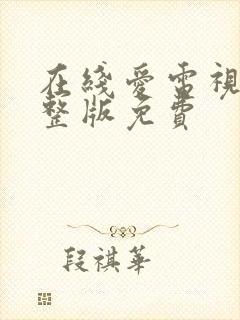 在綫愛雷視
整版免費
段祺華